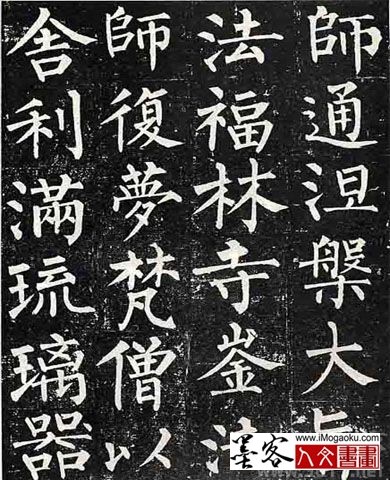 師通涅槃大
法福林寺崟法
師復夢梵僧以
舍利滿琉璃器
墨客
www.iMogaoku.com
人文書畫